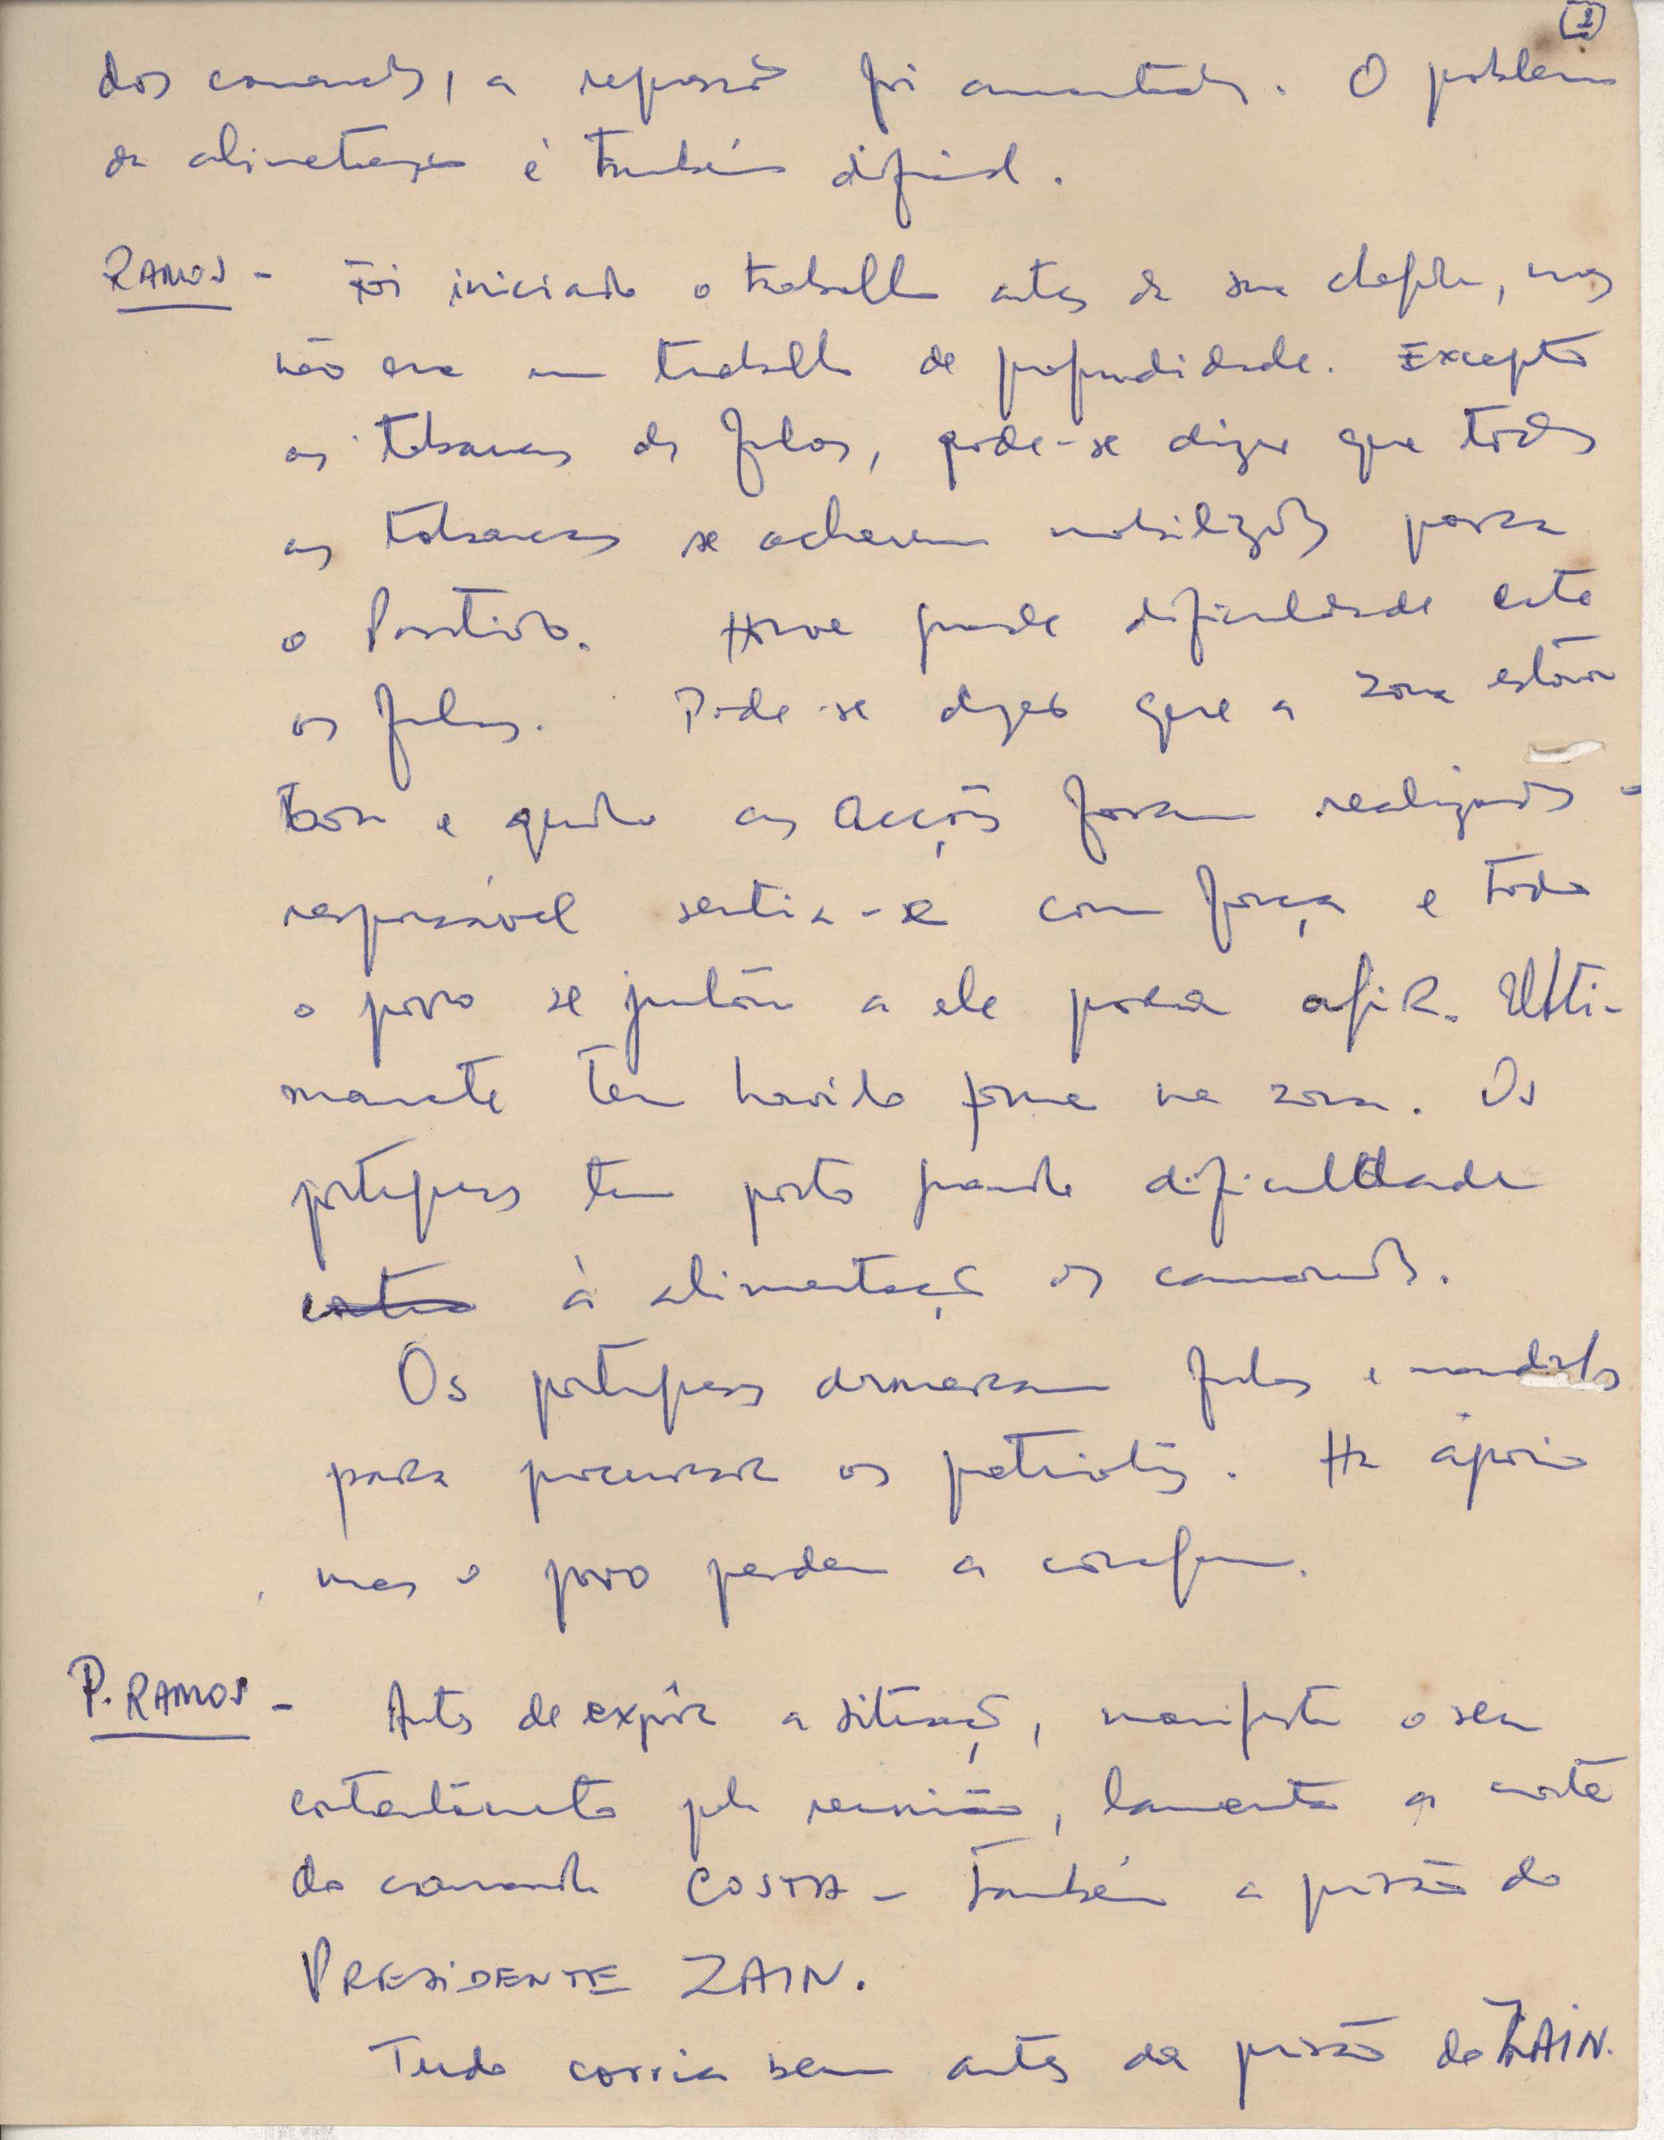 2
dos camaradas, a repressão foi aumentada. O problema
da alimentação é também difícil.
RAMOS - Foi iniciado o trabalho antes da sua chegada, mas
não era um trabalho de profundidade. Excepto
as tabancas dos fulas, pode-se dizer que todas
as tabancas se acharam mobilizadas para
o Partido. Houve grande dificuldade entre
os fulas. Pode-se dizer que a zona estava
boa e quando as acções foram realizadas -
responsável sentia-se com força e todo
o povo se juntou a ele para agir. Ulti-
mamente tem havido fome na zona. Os
portugueses tem posto grande dificuldade
contra à alimentação os camaradas.
Os portugueses armaram fulas e
para procurar os patriotas. Há apoio
mas o povo perdeu a coragem.
P. RAMOS - Antes de expôr a situação, manifesta o seu
contentamento pela reunião, lamenta a morte
do camarada COSTA - Também a prisão do
PRESIDENTE ZAIN.
Tudo corria bem antes da prisão do ZAIN.